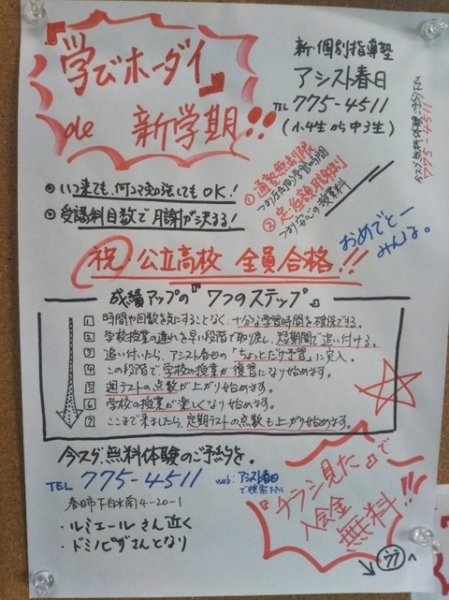 『学びホーダイ』
de 新学期!!
新・個別指導塾
アシスト春日
TEL 775-4511
(小4生から中3生)
今スグ無料体験
775-4511
◎いつ来ても、何コマ勉強してもOK!
◎受講科目数で月謝が決まる!
①通塾無制限
②定・低額月謝制
おめでとー
みんな。
祝 公立高校 全員合格!!!
成績アップの『7つのステップ』
1 時間や回数を気にすることなく、十分な学習時間を確保する。
2 学校授業の遅れを早い段階で取り戻し、短期間で追い付ける。
3 追い付いたら、アシスト春日の「ちょっとだけ予習」に突入。
4 この段階で、学校の授業が復習になり始めます。
5 週テストの点数が上がり始めます。
6 学校の授業が楽しくなり始めます。
7 ここまで来ましたら、定期テストの点数も上がり始めます。
今スグ無料体験のご予約を。
TEL 775-4511
web: アシスト春日
で検索下さい
春日市下白水南4-20-1
・ルミエールさん近く
・ドミノピザさんとなり
『チラシ見た』で
入会金
無料!!